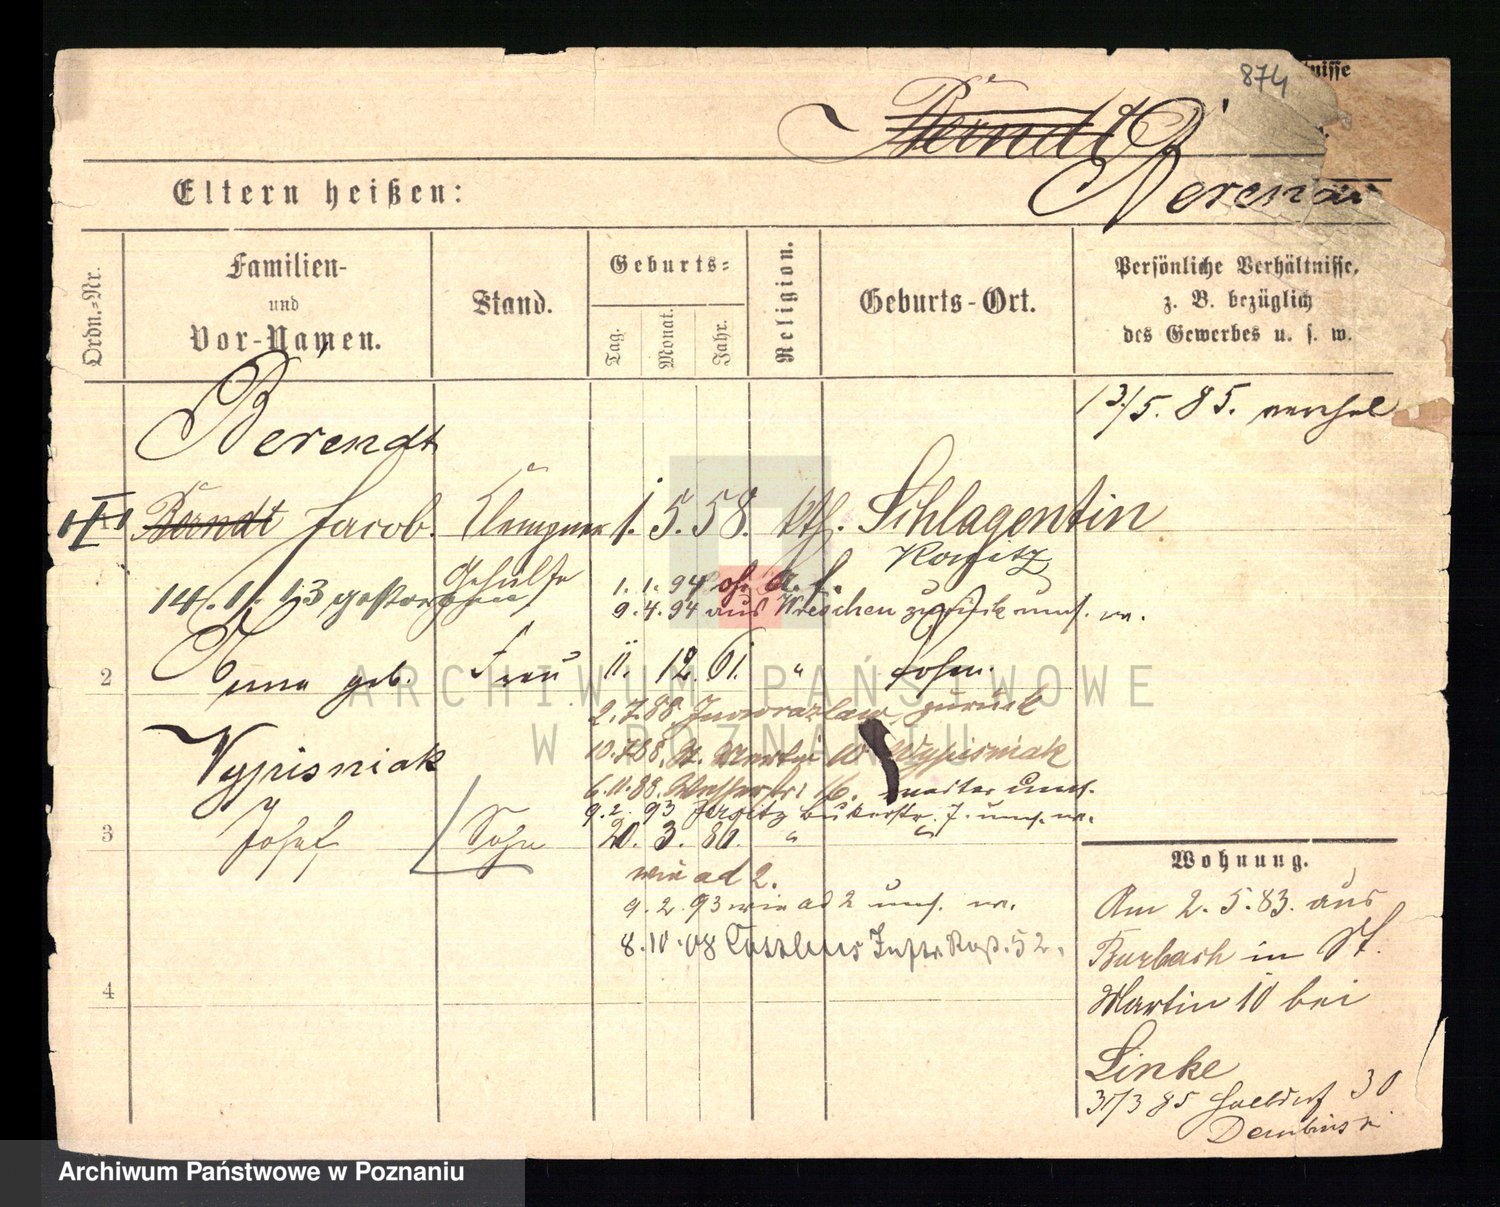 874
nisse
Berndt
Berendt
Eltern heißen:
Ordn.-Nr.
Familien-
und
Vor-Namen.
Stand.
Geburts-
Tag.
Monat.
Jahr.
Religion.
Geburts-Ort.
Persönliche Verhältnisse,
z. B. bezüglich
des Gewerbes u. s. w.
13/5. 85. verehel
Berendt
1 Berndt Jacob. Klempner 1. 5. 58. kth. Schlagentin
Gehülfe Konitz
14. 11. 13 gestorben
1. 1. 94
9. 4. 94 aus Wreschen zurück ums. w.
2 Anna geb. Frau 11. 12. 61. " Posen.
2. 7. 88 Inowrazlaw zurück
Wypisniak
10. 7. 88. St. Martin 10 Wypisniak
6. 11. 88. 16. weiter ums.
9. 2. 93 Jersitz Bukerstr. 7. ums. w.
3 Josef Sohn 20. 3. 80. " "
wie ad 2.
9. 2. 93 wie ad 2 ums. w.
8. 10. 08 52.
4
Wohnung.
Am 2. 5. 83. aus
Burbach in St.
Martin 10 bei
Linke
31/3 85 Halbdorf 30
Dembinski
ARCHIWUM PAŃSTWOWE
W POZNANIU
Archiwum Państwowe w Poznaniu